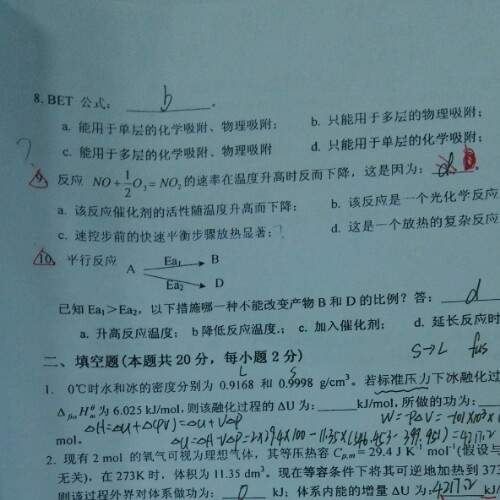 8. BET 公式： b 。
a. 能用于单层的化学吸附、物理吸附； b. 只能用于多层的物理吸附；
c. 能用于多层的化学吸附、物理吸附 d. 只能用于单层的化学吸附；
?
9. 反应 NO+1/2O₂=NO₂的速率在温度升高时反而下降，这是因为： d 。
a. 该反应催化剂的活性随温度升高而下降； b. 该反应是一个光化学反应
c. 速控步前的快速平衡步骤放热显著；? d. 这是一个放热的复杂反应
10. 平行反应 A Ea₁ B
Ea₂ D
已知 Ea₁＞Ea₂，以下措施哪一种不能改变产物 B 和 D 的比例？答： d
a. 升高反应温度； b 降低反应温度.； c. 加入催化剂； d. 延长反应时
二、填空题(本题共 20 分，每小题 2 分)
S→L fus
L S
1. 0℃时水和冰的密度分别为 0.9168 和 0.9998 g/cm³。若标准压力下冰融化过
ΔfusHθm 为 6.025 kJ/mol,则该融化过程的 ΔU 为: kJ/mol,所做的功为:
mol。 ΔH=ΔU+Δ(PV)=ΔU+VΔP
2. 现有 2 mol 的氧气可视为理想气体，其等压热容 Cp,m=29.4 J K⁻¹ mol⁻¹(假设与
无关)，在 273K 时，体积为 11.35 dm³。现在等容条件下将其可逆地加热到 373
则该过程外界对体系做功为： 0 kJ；体系内能的增量 ΔU 为: 4217.2